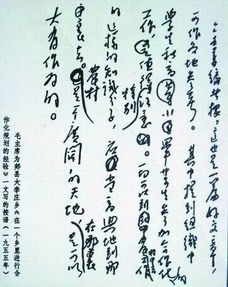 这也是一篇好文章，
可作各地参考。其中提到组织中
学生和高小毕业生参加合作化的
工作，值得特别注意。一切可以到农村中去工作
的这样的知识分子，应当高兴地到那
里去。农村是一个广阔的天地，在那里是可以
大有作为的。
毛主席为郏县大李庄乡《在一个乡里进行合
作化规划的经验》一文写的按语（一九五五年）